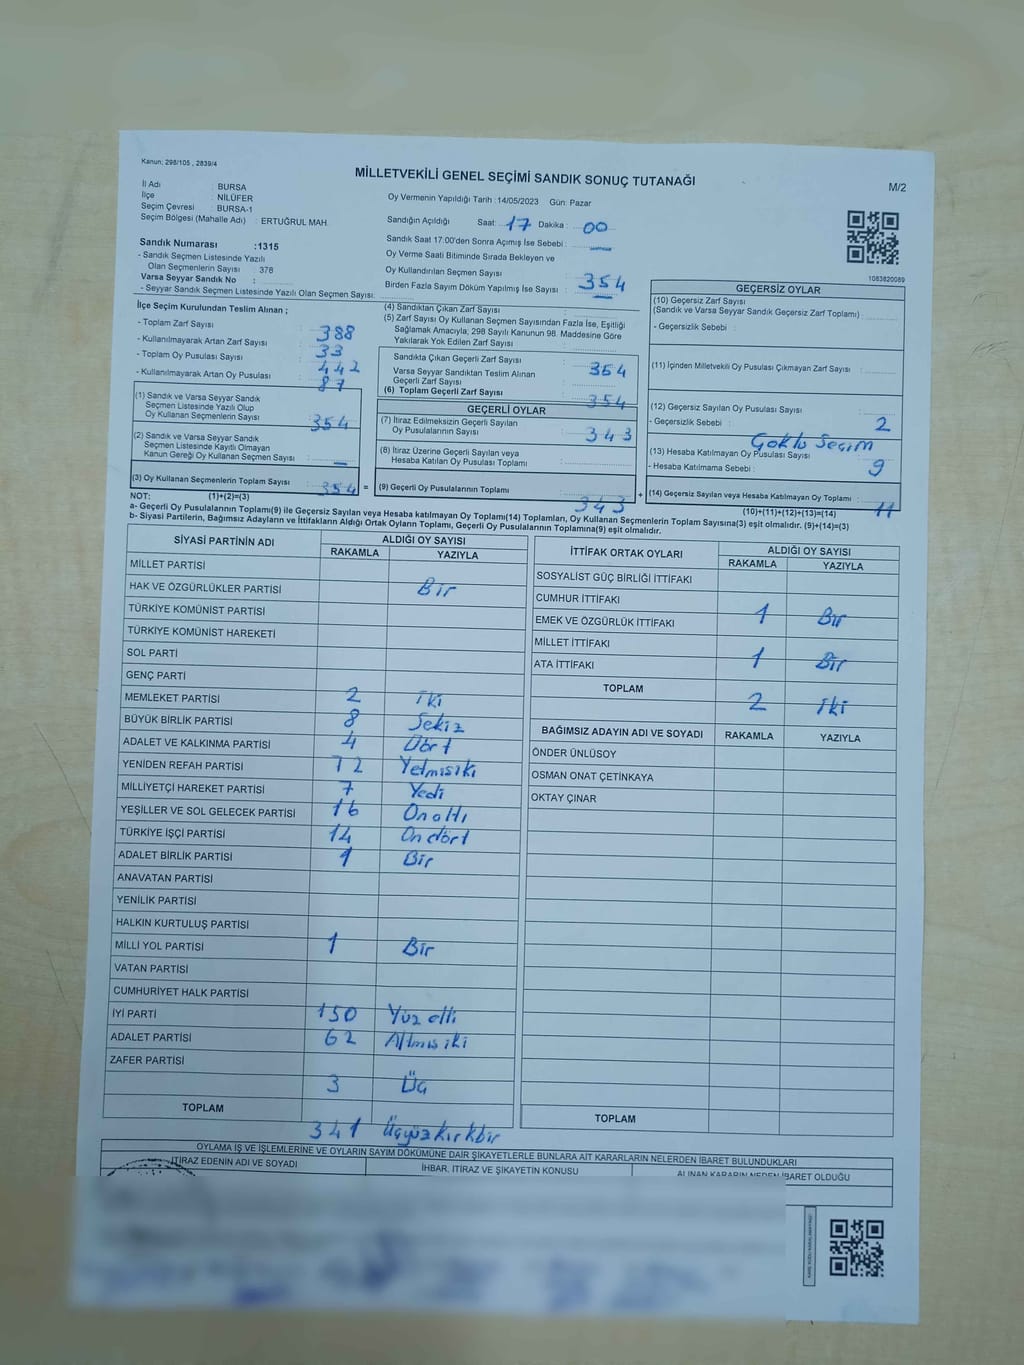 Kanun: 298/105 , 2839/4
MİLLETVEKİLİ GENEL SEÇİMİ SANDIK SONUÇ TUTANAĞI
M/2
İl Adı : BURSA
İlçe : NİLÜFER
Seçim Çevresi : BURSA-1
Seçim Bölgesi (Mahalle Adı) : ERTUĞRUL MAH.
Oy Vermenin Yapıldığı Tarih :14/05/2023 Gün: Pazar
Sandığın Açıldığı Saat: 17 Dakika : 00
Sandık Saat 17:00'den Sonra Açılmış İse Sebebi : —
Oy Verme Saati Bitiminde Sırada Bekleyen ve
Oy Kullandırılan Seçmen Sayısı : 354
Birden Fazla Sayım Döküm Yapılmış İse Sayısı : —
Sandık Numarası :1315
- Sandık Seçmen Listesinde Yazılı
Olan Seçmenlerin Sayısı : 378
Varsa Seyyar Sandık No :
- Seyyar Sandık Seçmen Listesinde Yazılı Olan Seçmen Sayısı:
1083820089
İlçe Seçim Kurulundan Teslim Alınan ;
- Toplam Zarf Sayısı : 388
- Kullanılmayarak Artan Zarf Sayısı : 33
- Toplam Oy Pusulası Sayısı : 442
- Kullanılmayarak Artan Oy Pusulası : 87
(1) Sandık ve Varsa Seyyar Sandık
Seçmen Listesinde Yazılı Olup
Oy Kullanan Seçmenlerin Sayısı : 354
(2) Sandık ve Varsa Seyyar Sandık
Seçmen Listesinde Kayıtlı Olmayan
Kanun Gereği Oy Kullanan Seçmen Sayısı : —
(3) Oy Kullanan Seçmenlerin Toplam Sayısı : 354 =
(4) Sandıktan Çıkan Zarf Sayısı :
(5) Zarf Sayısı Oy Kullanan Seçmen Sayısından Fazla İse, Eşitliği
Sağlamak Amacıyla; 298 Sayılı Kanunun 98. Maddesine Göre
Yakılarak Yok Edilen Zarf Sayısı :
Sandıkta Çıkan Geçerli Zarf Sayısı : 354
Varsa Seyyar Sandıktan Teslim Alınan
Geçerli Zarf Sayısı :
(6) Toplam Geçerli Zarf Sayısı : 354
GEÇERLİ OYLAR
(7) İtiraz Edilmeksizin Geçerli Sayılan
Oy Pusulalarının Sayısı : 343
(8) İtiraz Üzerine Geçerli Sayılan veya
Hesaba Katılan Oy Pusulası Toplamı :
(9) Geçerli Oy Pusulalarının Toplamı : 343 +
GEÇERSİZ OYLAR
(10) Geçersiz Zarf Sayısı
(Sandık ve Varsa Seyyar Sandık Geçersiz Zarf Toplamı) :
- Geçersizlik Sebebi :
(11) İçinden Milletvekili Oy Pusulası Çıkmayan Zarf Sayısı :
(12) Geçersiz Sayılan Oy Pusulası Sayısı : 2
- Geçersizlik Sebebi : Çoklu Seçim
(13) Hesaba Katılmayan Oy Pusulası Sayısı : 9
- Hesaba Katılmama Sebebi :
(14) Geçersiz Sayılan veya Hesaba Katılmayan Oy Toplamı : 11
NOT: (1)+(2)=(3)
(10)+(11)+(12)+(13)=(14)
a- Geçerli Oy Pusulalarının Toplamı(9) ile Geçersiz Sayılan veya Hesaba Katılmayan Oy Toplamı(14) Toplamları, Oy Kullanan Seçmenlerin Toplam Sayısına(3) eşit olmalıdır. (9)+(14)=(3)
b- Siyasi Partilerin, Bağımsız Adayların ve İttifakların Aldığı Ortak Oyların Toplamı, Geçerli Oy Pusulalarının Toplamına(9) eşit olmalıdır.
SİYASİ PARTİNİN ADI ALDIĞI OY SAYISI
RAKAMLA YAZIYLA
MİLLET PARTİSİ
HAK VE ÖZGÜRLÜKLER PARTİSİ Bir
TÜRKİYE KOMÜNİST PARTİSİ
TÜRKİYE KOMÜNİST HAREKETİ
SOL PARTİ
GENÇ PARTİ
MEMLEKET PARTİSİ 2 İki
BÜYÜK BİRLİK PARTİSİ 8 Sekiz
ADALET VE KALKINMA PARTİSİ 4 Dört
YENİDEN REFAH PARTİSİ 72 Yetmişiki
MİLLİYETÇİ HAREKET PARTİSİ 7 Yedi
YEŞİLLER VE SOL GELECEK PARTİSİ 16 Onaltı
TÜRKİYE İŞÇİ PARTİSİ 14 Ondört
ADALET BİRLİK PARTİSİ 1 Bir
ANAVATAN PARTİSİ
YENİLİK PARTİSİ
HALKIN KURTULUŞ PARTİSİ
MİLLİ YOL PARTİSİ 1 Bir
VATAN PARTİSİ
CUMHURİYET HALK PARTİSİ
İYİ PARTİ 150 Yüz elli
ADALET PARTİSİ 62 Altmış iki
ZAFER PARTİSİ
3 Üç
TOPLAM
341 Üçyüzkırkbir
İTTİFAK ORTAK OYLARI ALDIĞI OY SAYISI
RAKAMLA YAZIYLA
SOSYALİST GÜÇ BİRLİĞİ İTTİFAKI
CUMHUR İTTİFAKI
EMEK VE ÖZGÜRLÜK İTTİFAKI 1 Bir
MİLLET İTTİFAKI
ATA İTTİFAKI 1 Bir
TOPLAM 2 İki
BAĞIMSIZ ADAYIN ADI VE SOYADI RAKAMLA YAZIYLA
ÖNDER ÜNLÜSOY
OSMAN ONAT ÇETİNKAYA
OKTAY ÇINAR
TOPLAM
OYLAMA İŞ VE İŞLEMLERİNE VE OYLARIN SAYIM DÖKÜMÜNE DAİR ŞİKAYETLERLE BUNLARA AİT KARARLARIN NELERDEN İBARET BULUNDUKLARI
İTİRAZ EDENİN ADI VE SOYADI İHBAR, İTİRAZ VE ŞİKAYETİN KONUSU ALINAN KARARIN NEDEN İBARET OLDUĞU